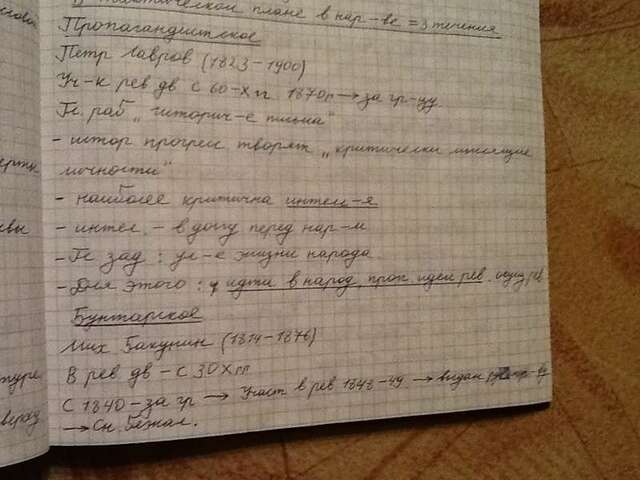 В политическом плане в нар-ве = 3 течения
Пропагандистское
Петр Лавров (1823-1900)
Уч-к рев дв с 60-х гг. 1870г → за гр-цу.
Гл. раб „историч-е письма“
- истор прогресс творят „критически мыслящие
личности“
- наиболее критична интел-я
- интел. - в долгу перед нар-м
- Гл зад: ул-е жизни народа
- Для этого: идти в народ, проп. идеи рев.
Бунтарское
Мих Бакунин (1814-1876)
В рев дв - с 30х гг
С 1840 - за гр → Участ в рев 1848-49 → выдан
→ Сн. бежал.